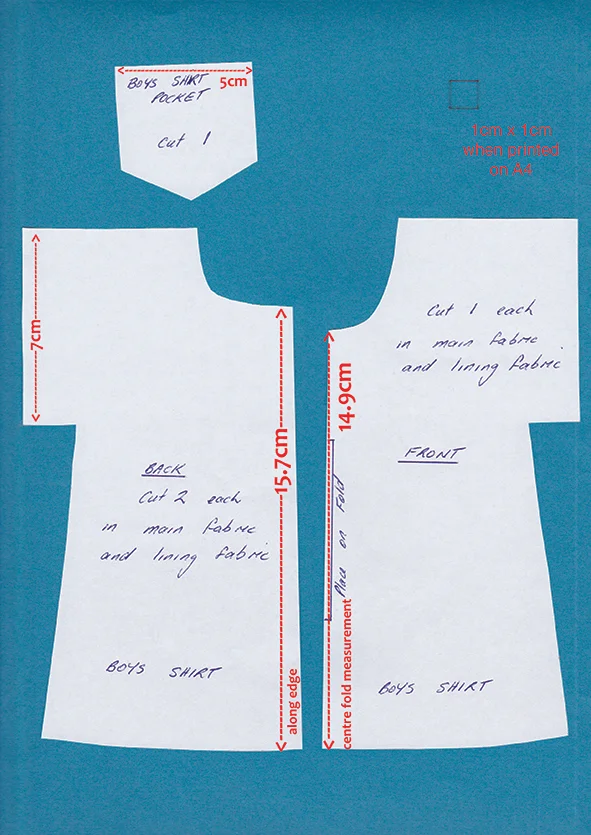 5cm
BOYS SHIRT
POCKET
Cut 1
1cm x 1cm
when printed
on A4
7cm
15.7cm
along edge
BACK
Cut 2 each
in main fabric
and lining fabric
BOYS SHIRT
14.9cm
centre fold measurement
Place on Fold
Cut 1 each
in main fabric.
and lining fabric
FRONT
BOYS SHIRT